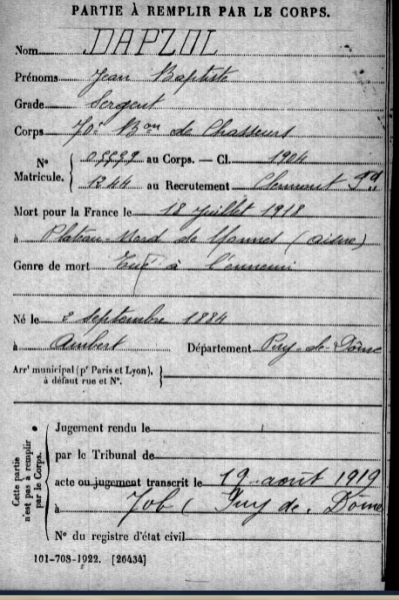 PARTIE À REMPLIR PAR LE CORPS.
Nom DAPZOL
Prénoms Jean Baptiste
Grade Sergent
Corps 70e Bon de Chasseurs
No Matricule. { 05999 au Corps. — Cl. 1904
1244 au Recrutement Clermont Fd
Mort pour la France le 18 Juillet 1918
à Plateau Nord de (Aisne)
Genre de mort Tué à l'ennemi
Né le 2 septembre 1884
à Ambert Département Puy-de-Dôme
Arrt municipal (pr Paris et Lyon), à défaut rue et No. }
Cette partie n'est pas à remplir par le Corps.
Jugement rendu le
par le Tribunal de
acte ou jugement transcrit le 19 août 1919
à Job (Puy de Dôme
No du registre d'état civil
101-708-1922. [26434]